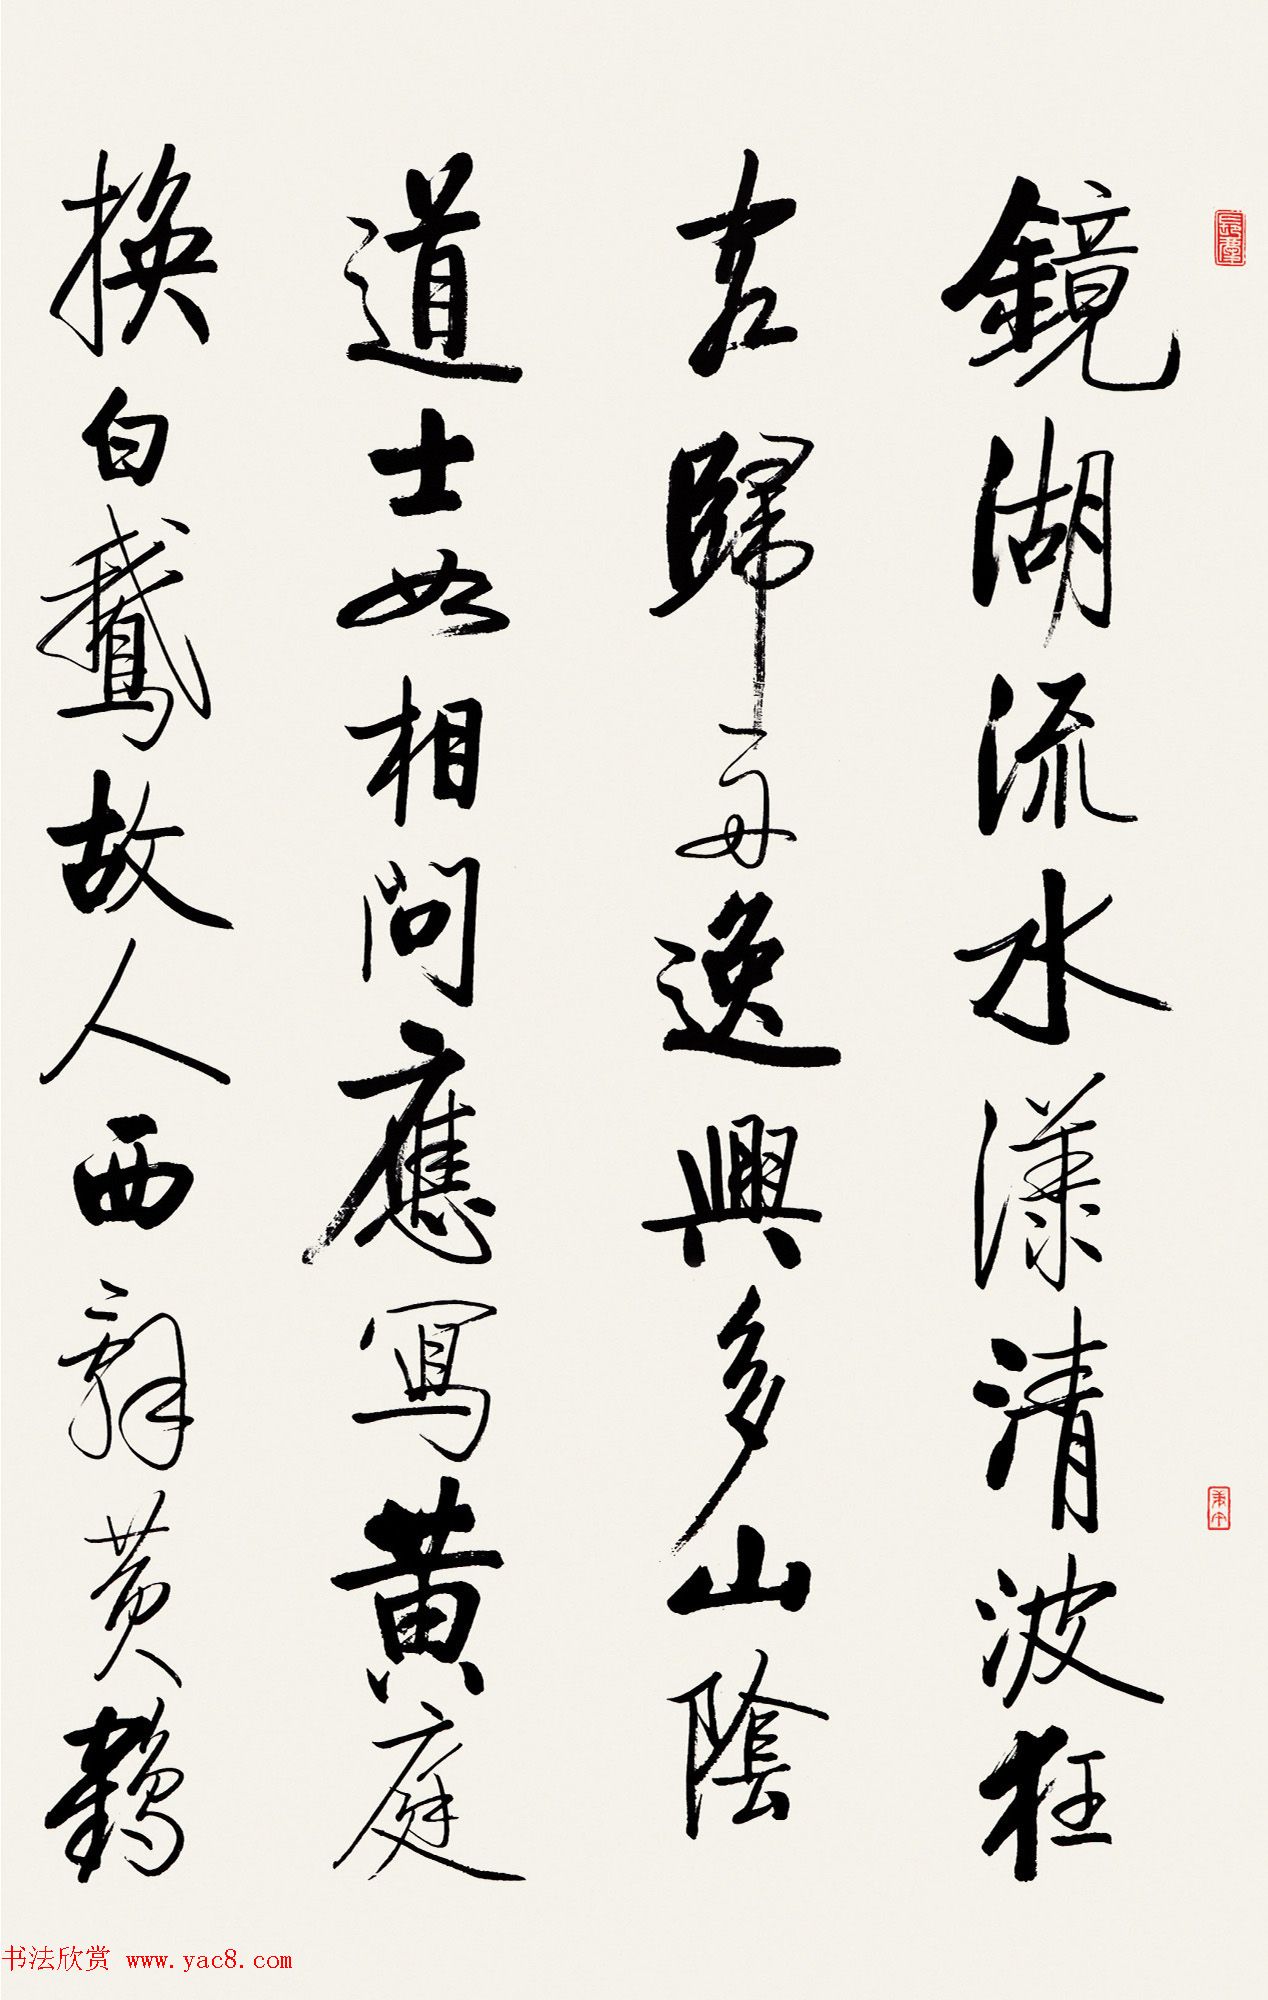 鏡湖流水漾清波狂
客歸舟逸興多山陰
道士如相問應寫黄庭
換白鵝故人西辭黄鶴
书法欣赏 www.yac8.com